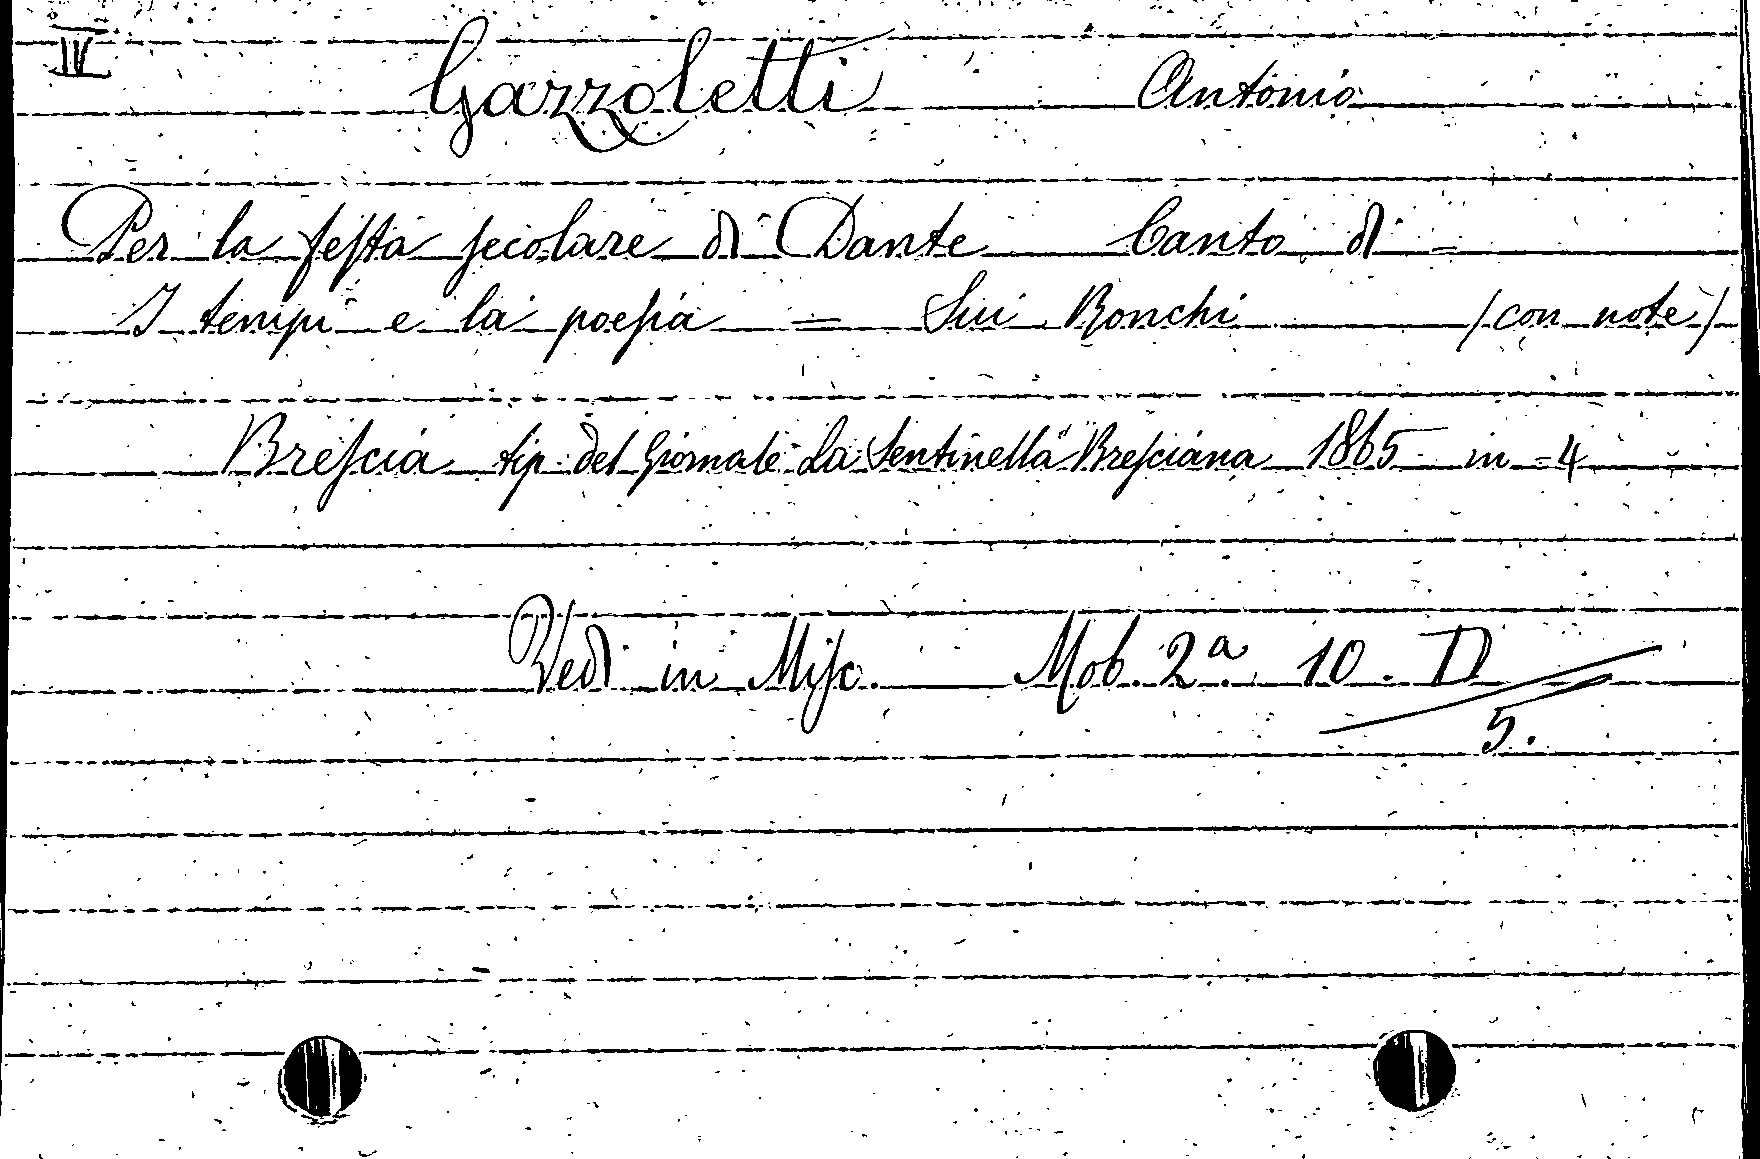 IV
Gazzoletti Antonio
Per la festa secolare di Dante Canto di -
I tempi e la poesia = Sui Ronchi (con note)
Brescia tip. del Giornale La Sentinella Bresciana 1865 in -4
Vedi in Misc. Mob. 2a. 10. D
5.